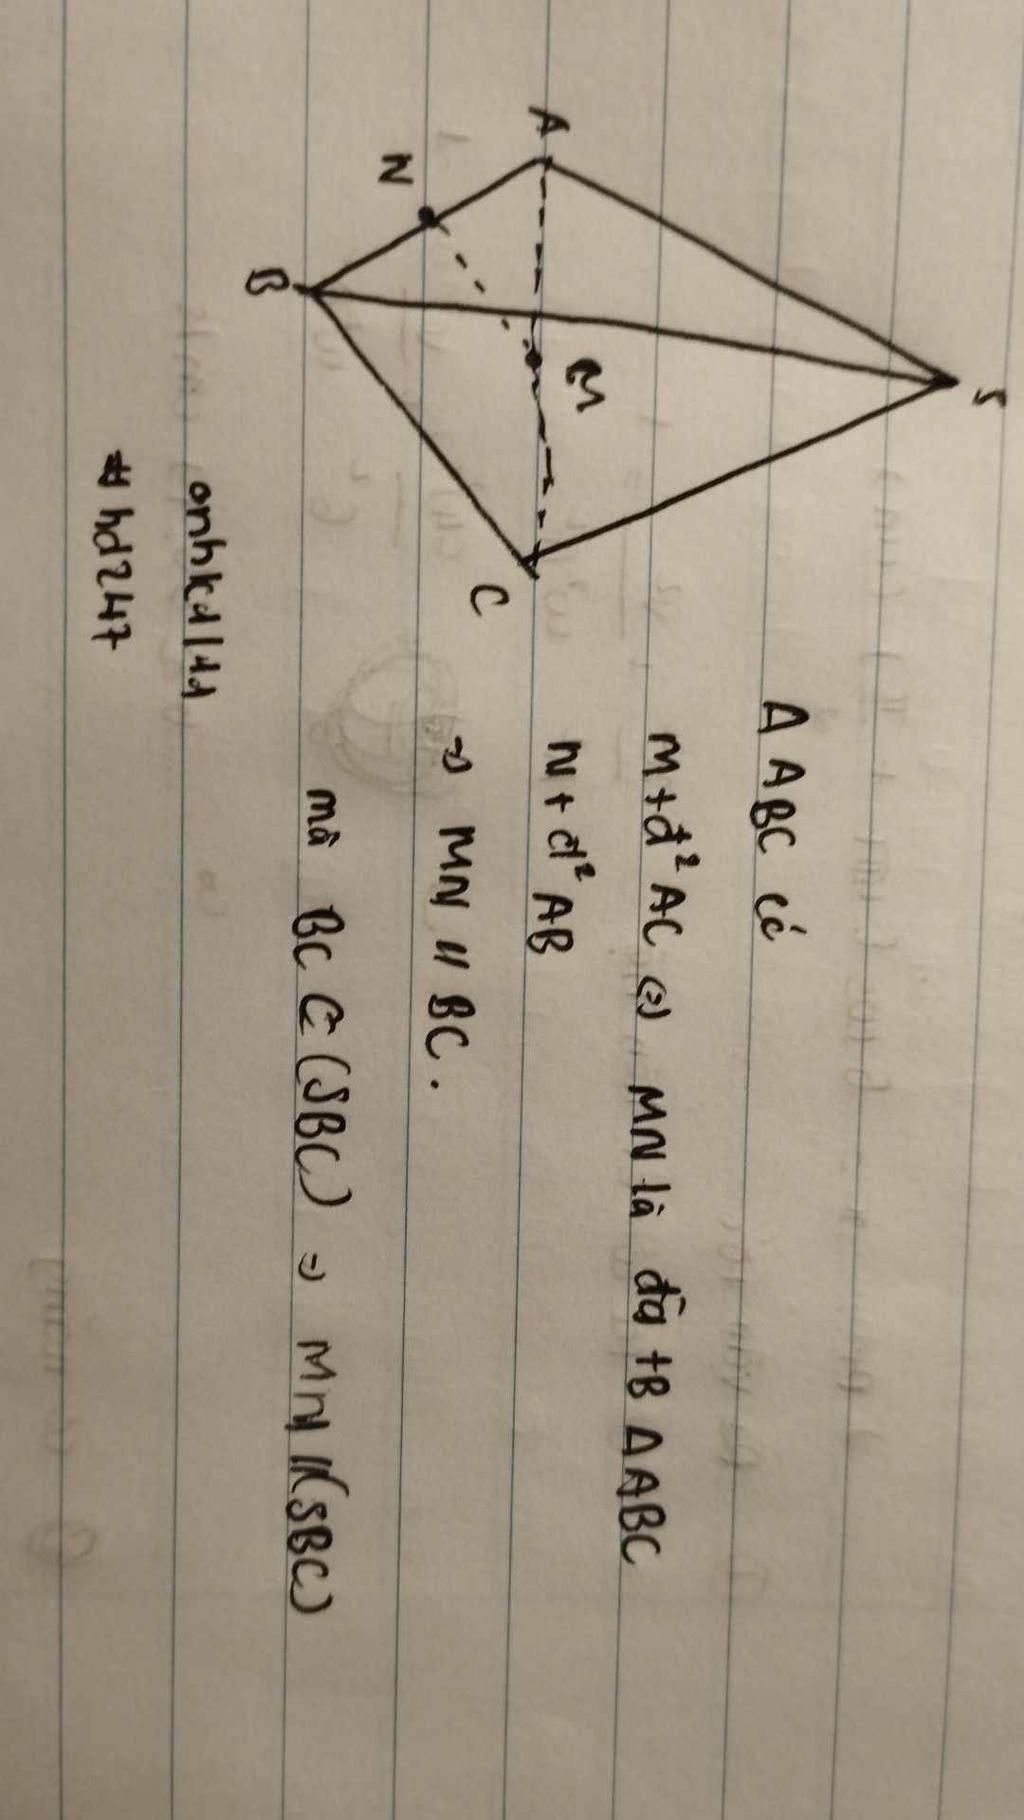 S
A
M
N
B
C
Δ ABC có
M t đ² AC (=) MN là đg tB Δ ABC
N t đ² AB
=) MN // BC.
mà BC C (SBC) =) MN // (SBC)
onhkd144
# hd247